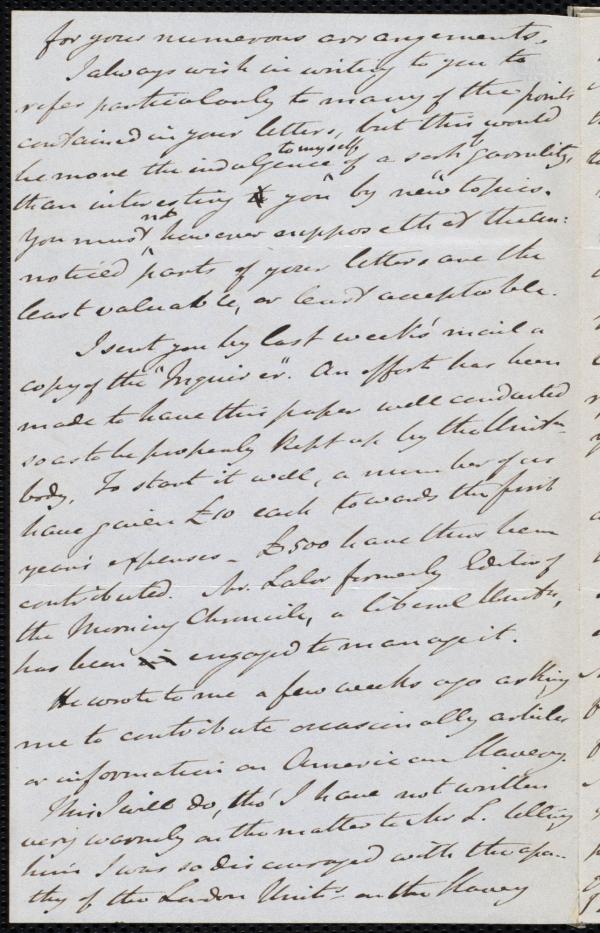 for your numerous arrangements.
I always wish in writing to you to
refer particularly to many of the points
contained in your letters, but this would
be more the indulgence to myself of a sort of garrulity,
than interesting to you by new topics.
You must not however suppose that the un=
noticed parts of your letters are the
least valuable, or least acceptable.
I sent you by last weeks' mail a
copy of the "Inquirer". An effort has been
made to have this paper well conducted
so as to be properly kept up by the Unitn
body. To start it well, a number of us
have given £10 each towards the first
year's expenses – £500 have thus been
contributed. Mr. Lalor formerly Editor of
the Morning Chronicle, a liberal Unitn,
has been engaged to manage it.
He wrote to me a few weeks ago asking
me to contribute occasionally articles
or information on American Slavery.
This I will do, tho' I have not written
very warmly on the matter to Mr L. telling
him I was so discouraged with the apa-
thy of the London Units on the Slavery